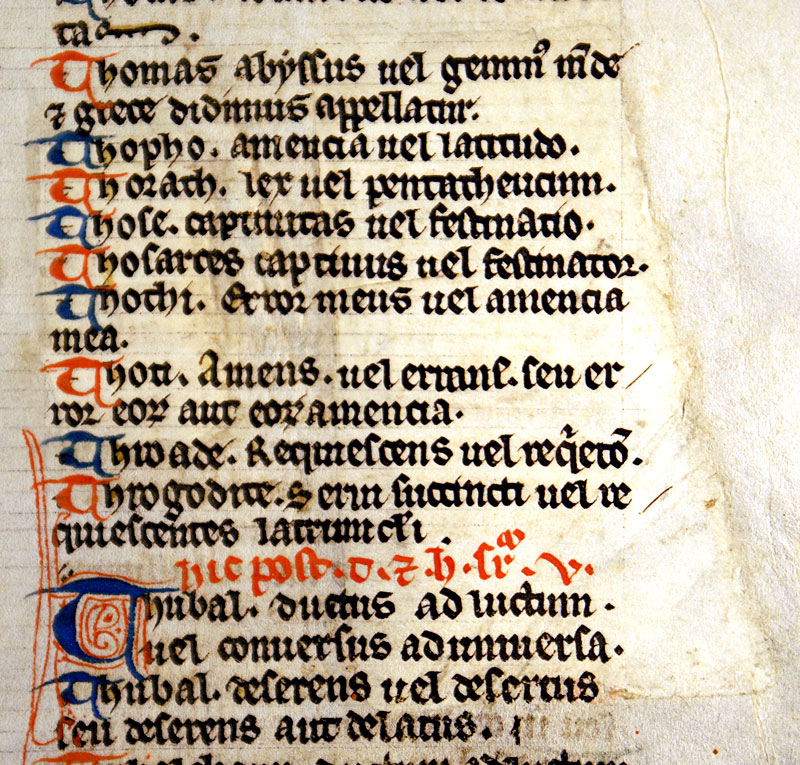 ta
Thomas abyssus uel gemin⁹ īn̄de
⁊ grece didimus appellatur.
Thopho. amencia uel latitudo.
Thorach. lex uel pentatheucum.
Those. captiuitas uel festinatio.
Thosartes captiuus uel festinator.
Thochi. Error meus uel amencia
mea.
Thou. Amens. uel errans. seu er
ror eoꝝ aut eoꝝ amencia.
Throade. Requiescens uel
Throgodite. Serui succincti uel re
quiescentes latrunc̄li.
hic post. t. ⁊. h. seq̄r. v.
Thubal. ductus ad luctum.
uel conuersus ad uniuersa.
Thubal. deserens uel desertus
seu deserens aut delatus.